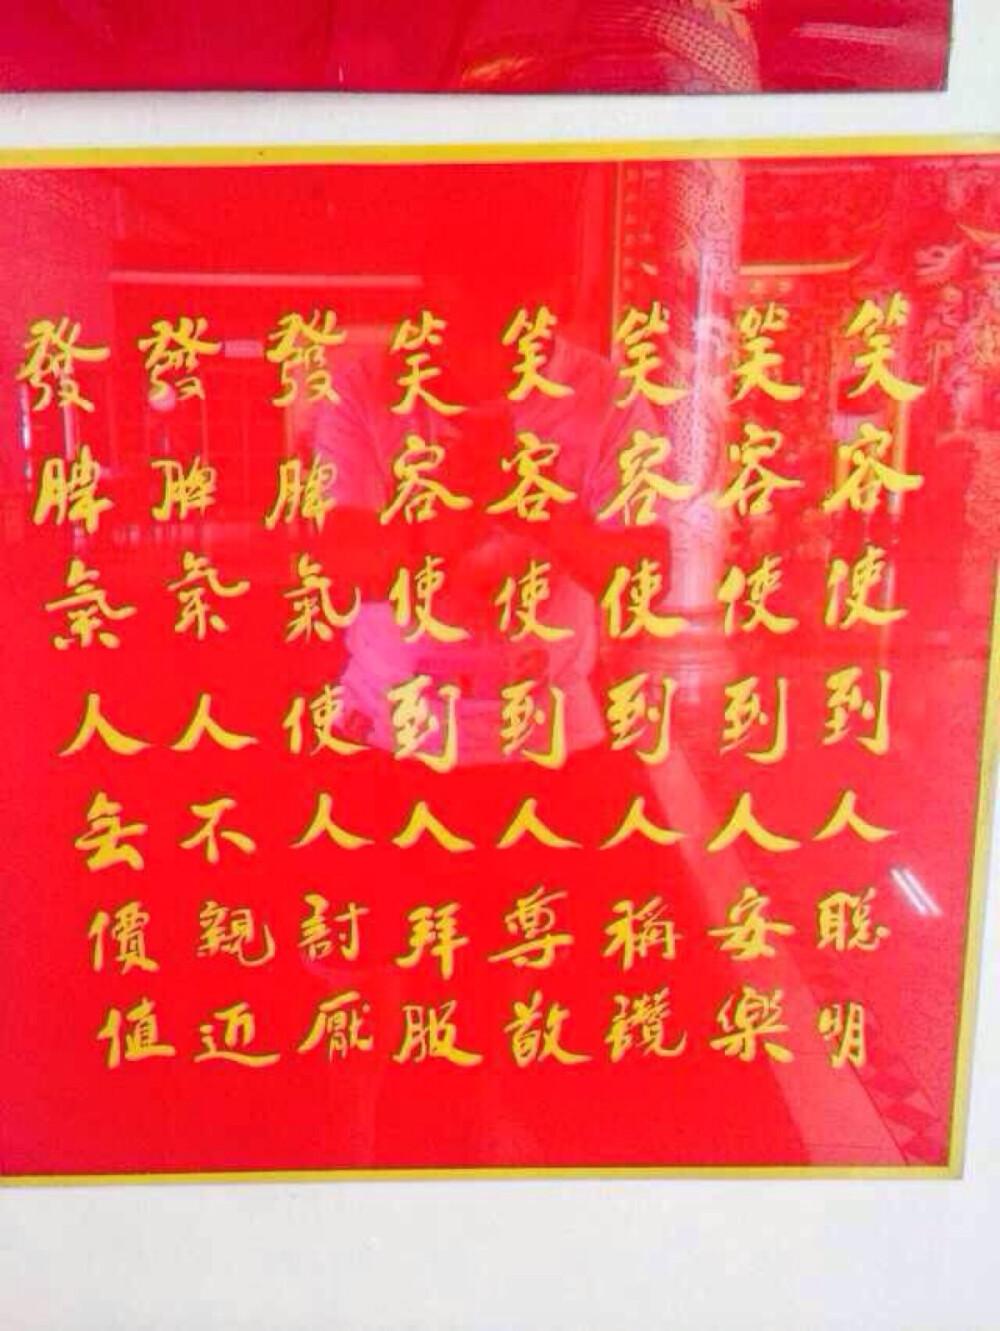 笑容使到人聪明
笑容使到人安樂
笑容使到人稱讚
笑容使到人尊敬
笑容使到人拜服
發脾氣使人討厭
發脾氣人不親近
發脾氣人無價值